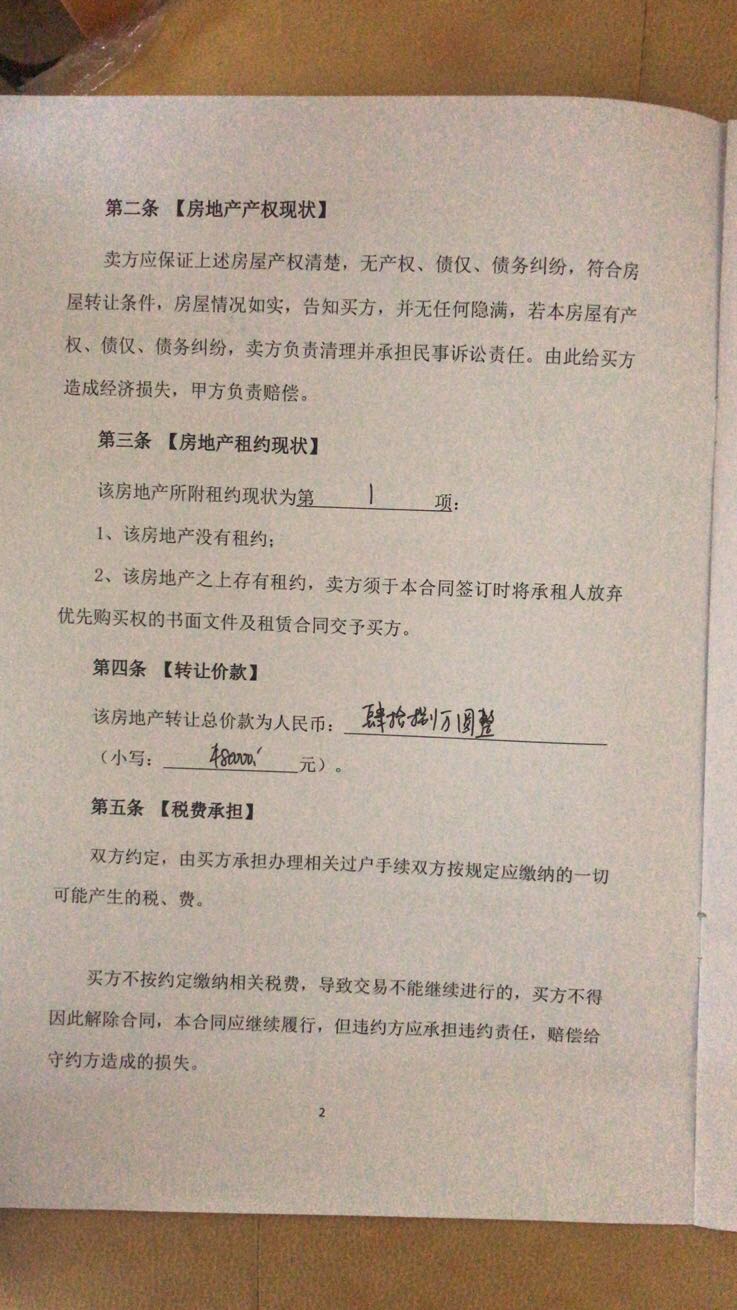 第二条 【房地产产权现状】
卖方应保证上述房屋产权清楚，无产权、债仅、债务纠纷，符合房
屋转让条件，房屋情况如实，告知买方，并无任何隐满，若本房屋有产
权、债仅、债务纠纷，卖方负责清理并承担民事诉讼责任。由此给买方
造成经济损失，甲方负责赔偿。
第三条 【房地产租约现状】
该房地产所附租约现状为第 1 项：
1、该房地产没有租约；
2、该房地产之上存有租约，卖方须于本合同签订时将承租人放弃
优先购买权的书面文件及租赁合同交予买方。
第四条 【转让价款】
该房地产转让总价款为人民币：肆拾捌万圆整
（小写：480000 元）。
第五条 【税费承担】
双方约定，由买方承担办理相关过户手续双方按规定应缴纳的一切
可能产生的税、费。
买方不按约定缴纳相关税费，导致交易不能继续进行的，买方不得
因此解除合同，本合同应继续履行，但违约方应承担违约责任，赔偿给
守约方造成的损失。
2